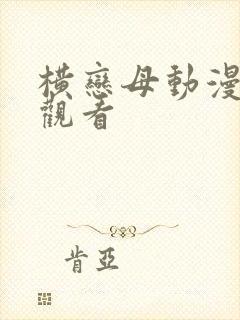 橫戀母動漫
觀看
肯亞